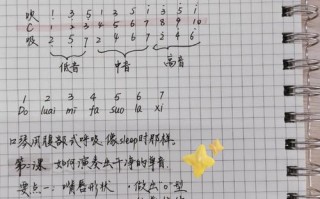 吹 1 3 5 1 3 5 i 3 5 i
C 1 2 3 4 5 6 7 8 9 10
吸 2 5 7 2 4 6 7 2 4 6
低音 中音 高音
1 2 3 4 5 6 7
Do luai mi fa suo la xi
口琴用腹部式呼吸像sleep时那样。
第二课 如何演奏出干净的单音
要点一:嘴唇形状,做出"O"型